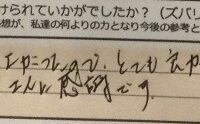 けられていかがでしたか？（ズバリ
想が、私達の何よりの力となり今後の参考と
ので、とても
感謝です